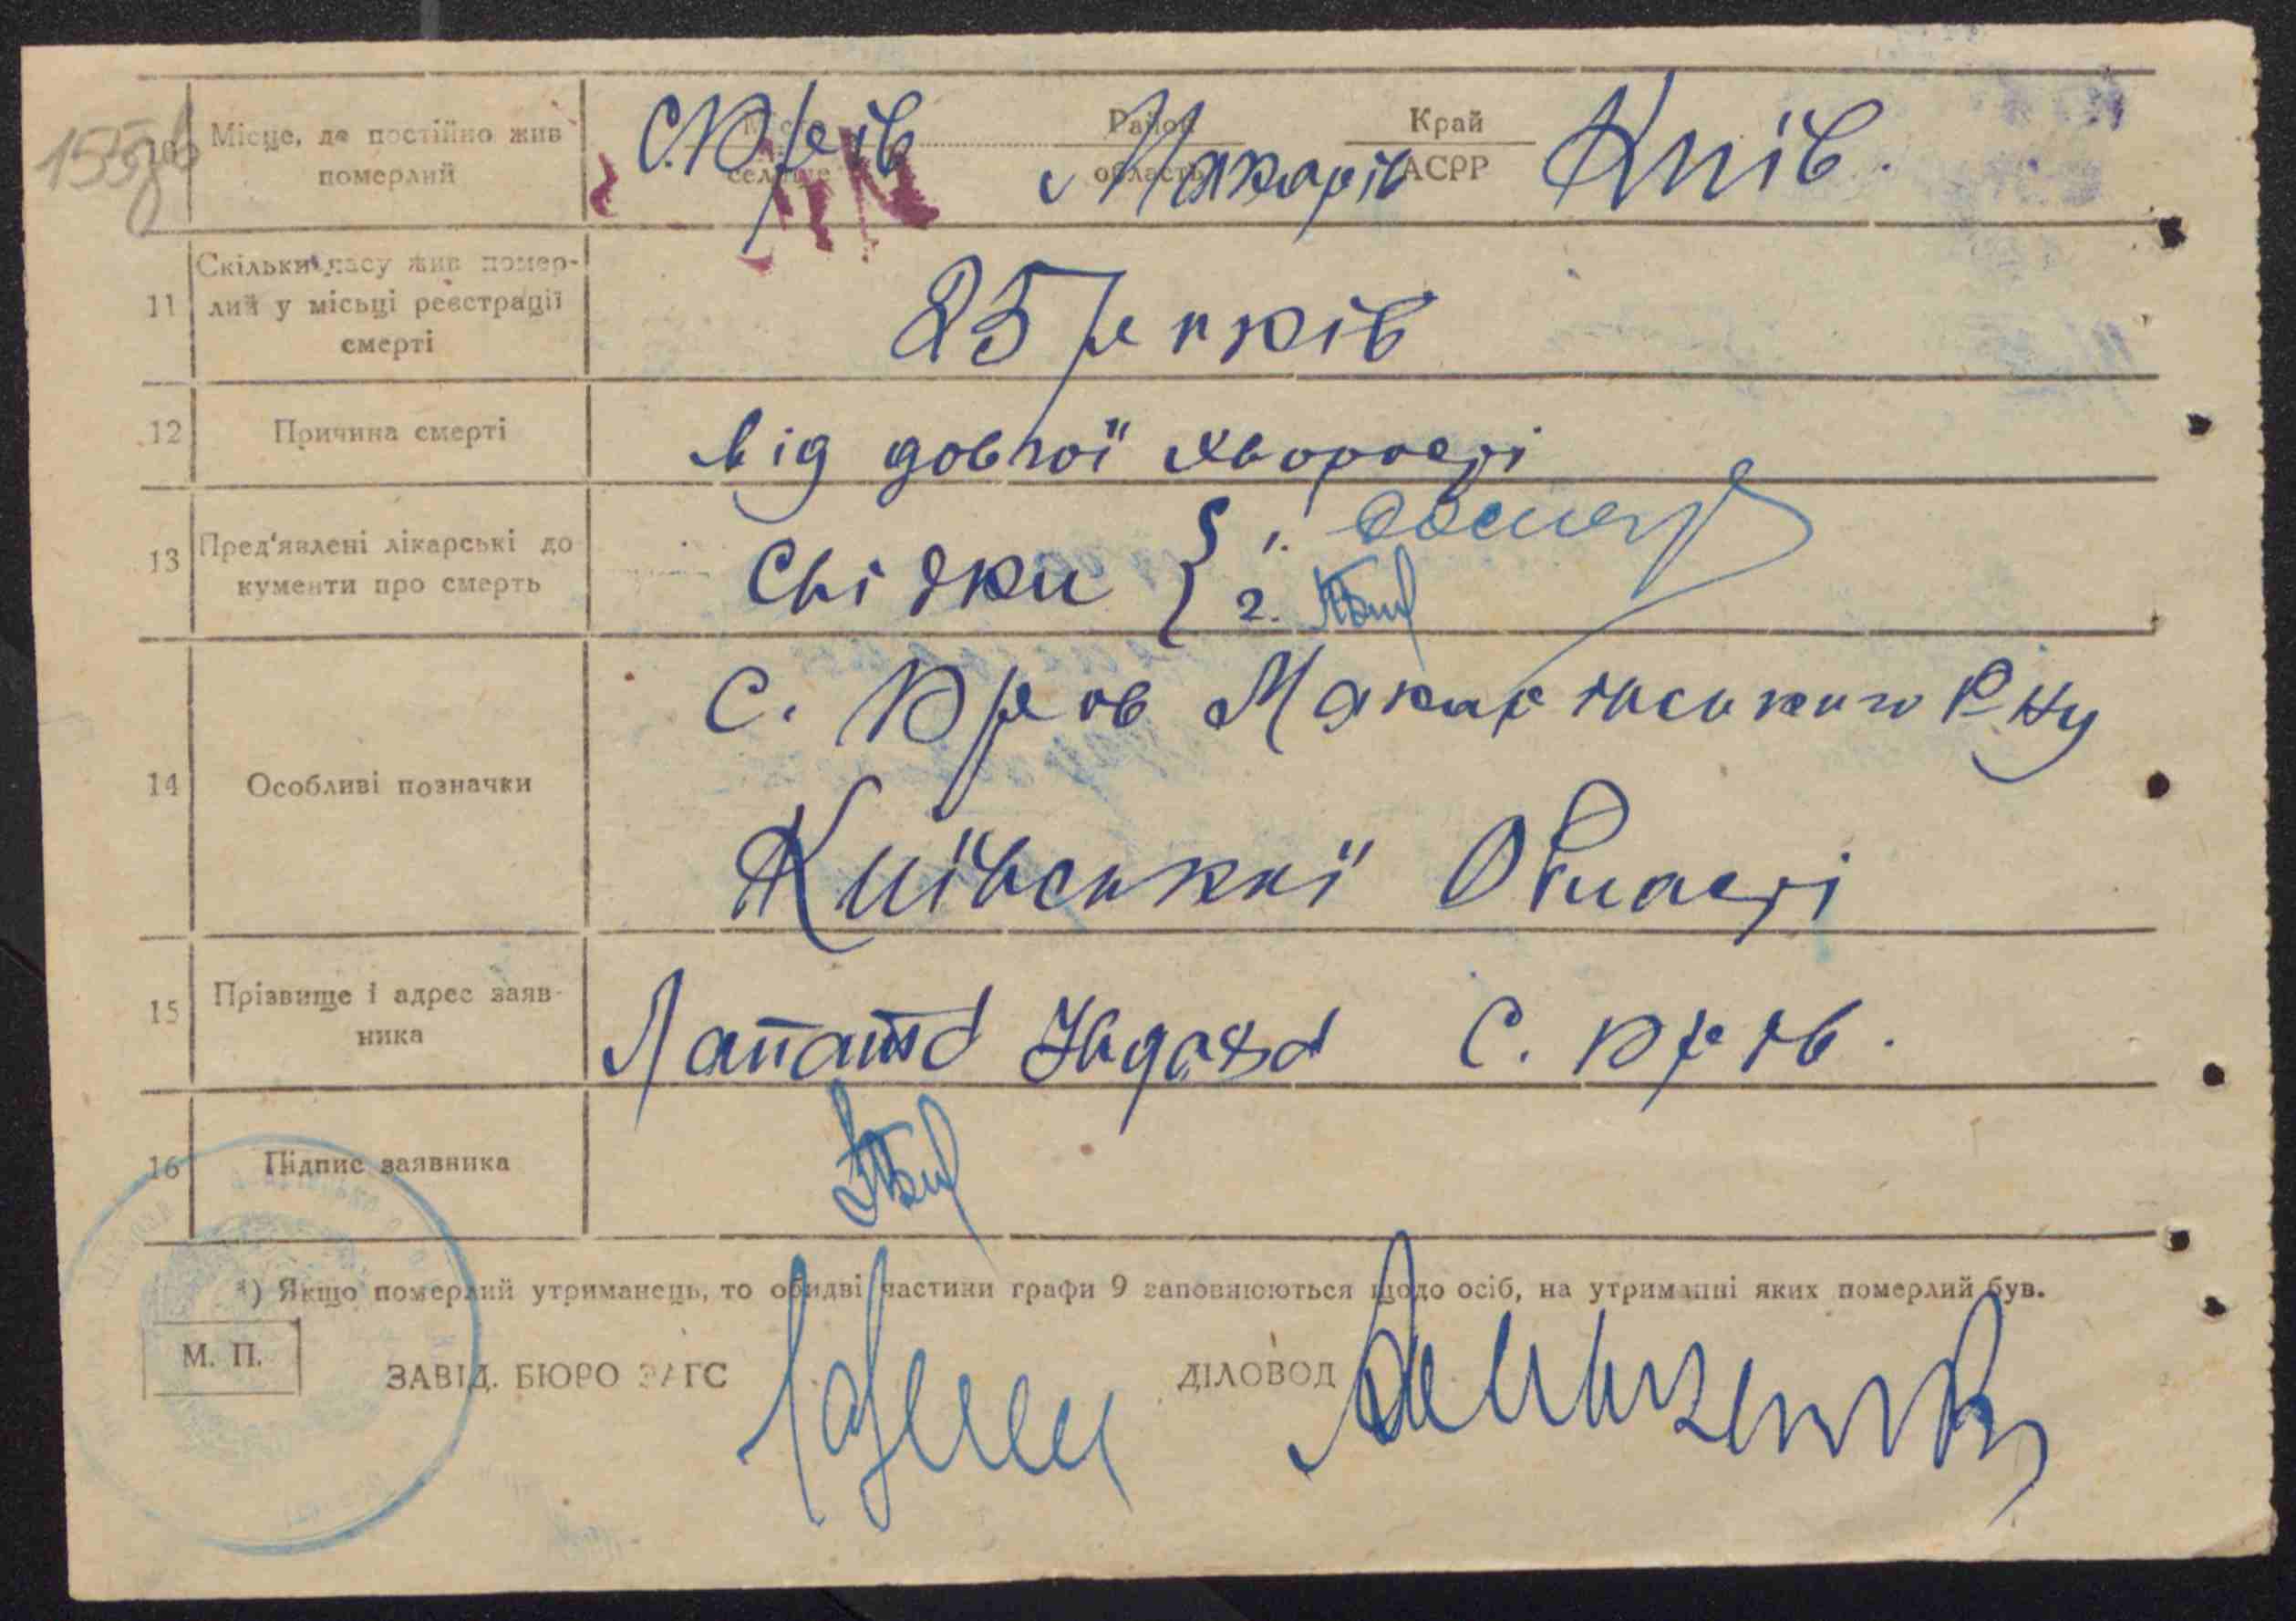 155 зв
Місце, де постійно жив
померлий
С. Юрів
Місто
селище
Район
область
Макарів
Край
АСРР
Київ.
11
Скільки часу жив помер-
лий у місьці реєстрації
смерті
25 років
12
Причина смерті
від довгої хворості
13
Пред'явлені лікарські до
кументи про смерть
Свідки { 1.
2.
14
Особливі позначки
С. Юрів Макарівського Р-ну
Київської Області
15
Прізвище і адрес заяв-
ника
С. Юрів.
16
Підпис заявника
*) Якщо померлий утриманець, то обидві частини графи 9 заповнюються щодо осіб, на утриманні яких померлий був.
М. П.
ЗАВІД. БЮРО ЗАГС
ДІЛОВОД